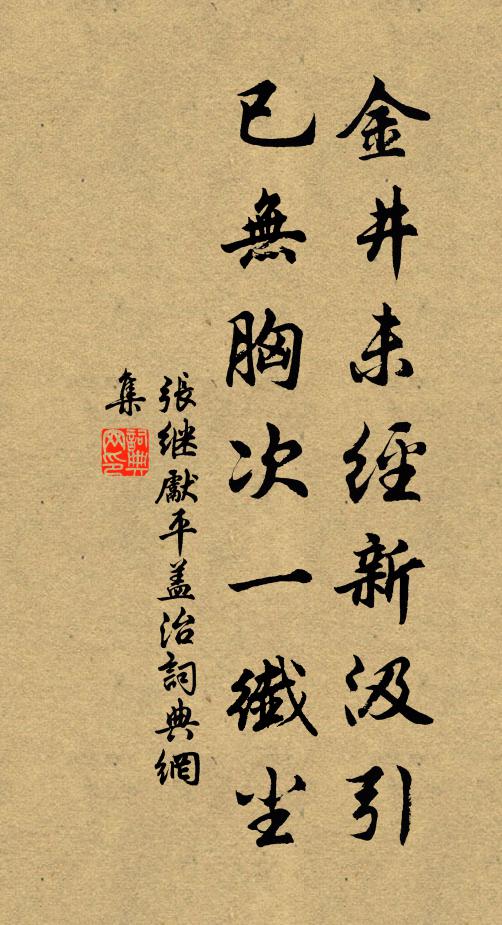 金井未經新汲引
已無胸次一纖尘
張继獻平盖治詞典網
集
詞典
网印